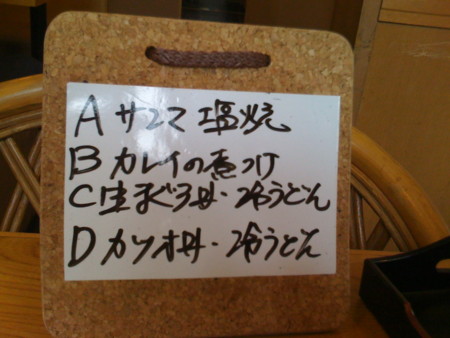 A サンマ 塩焼
B カレイの煮つけ
C 生まぐろ丼・冷うどん
D カツオ丼・冷うどん